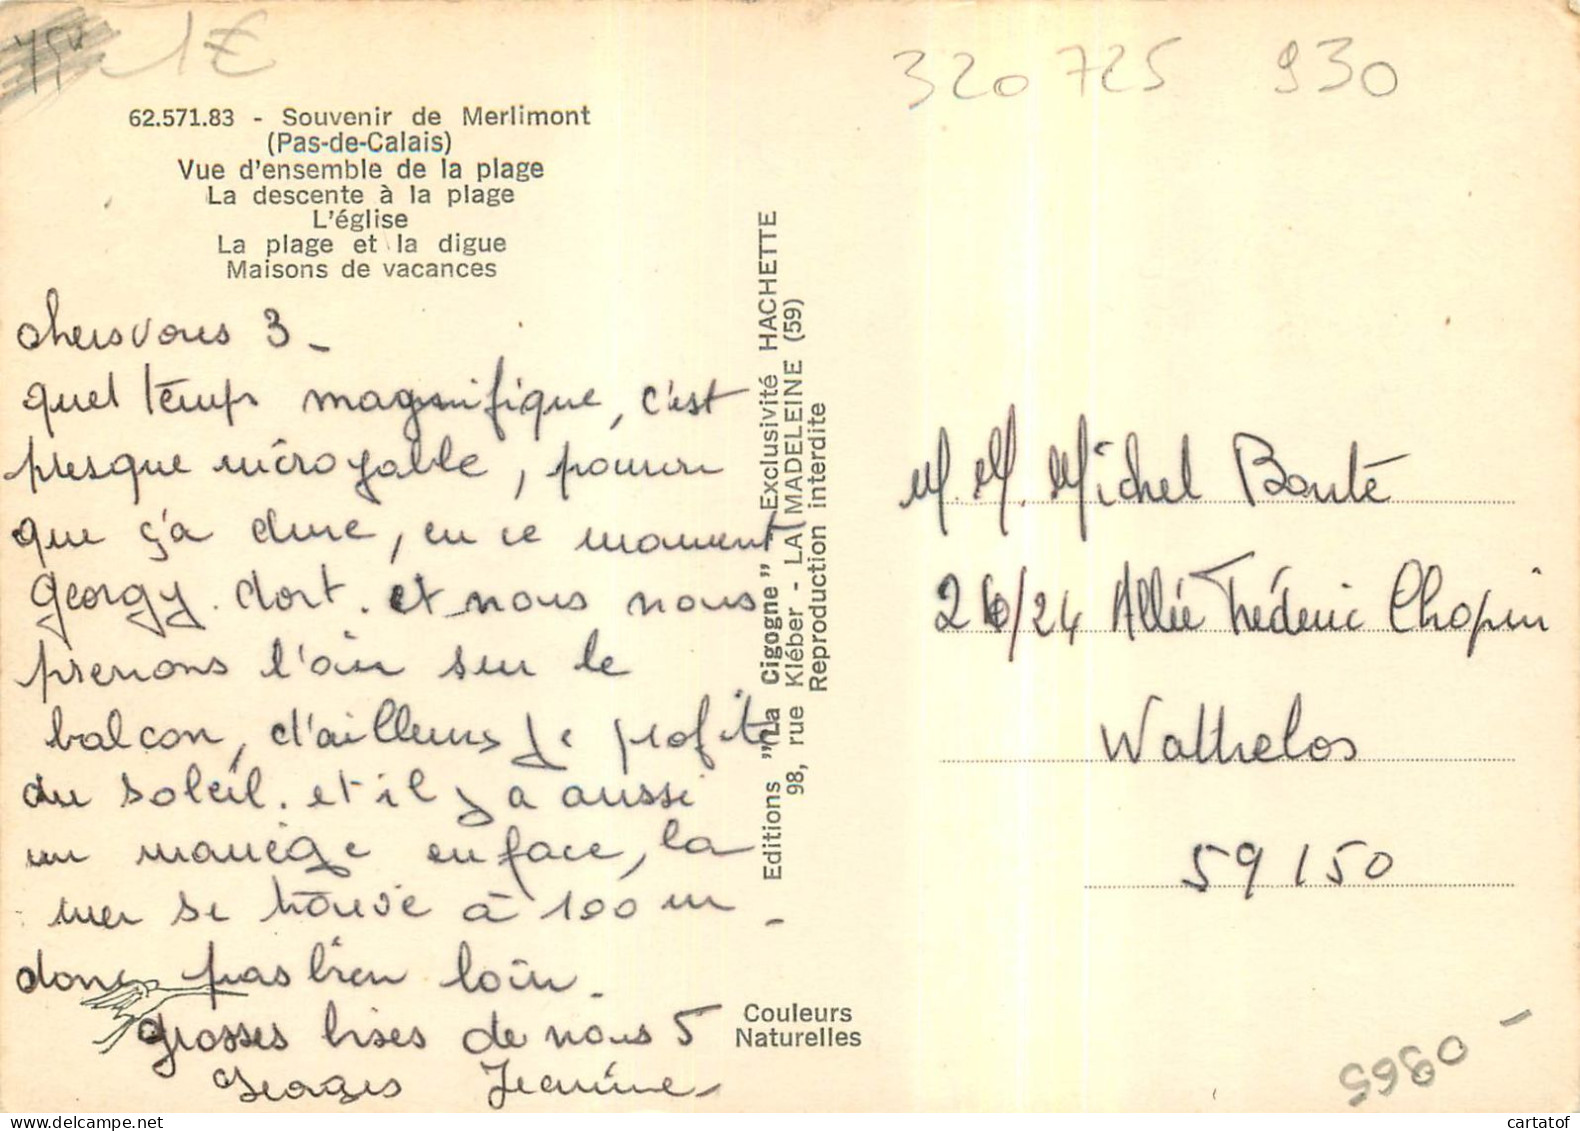 1€
320 725 930
62.571.83 - Souvenir de Merlimont
(Pas-de-Calais)
Vue d'ensemble de la plage
La descente à la plage
L'église
La plage et la digue
Maisons de vacances
chers vous 3 -
quel temps magnifique, c'est
presque incroyable, pourvu
que ça dure, en ce moment
georgy. dort. et nous nous
prenons l'air sur le
balcon, d'ailleurs je profite
du soleil. et il y a aussi
un manège en face, la
mer se trouve à 100 m -
donc pas bien loin.
grosses bises de nous 5
Georges Jeanine
Editions "La Cigogne" - Exclusivité HACHETTE
98, rue Kléber - LA MADELEINE (59)
Reproduction interdite
Couleurs
Naturelles
M. M. Michel Bonté
26/24 Allée Frédéric Chopin
Wattrelos
59150
5980 -
www.cartatof.com
cartatof